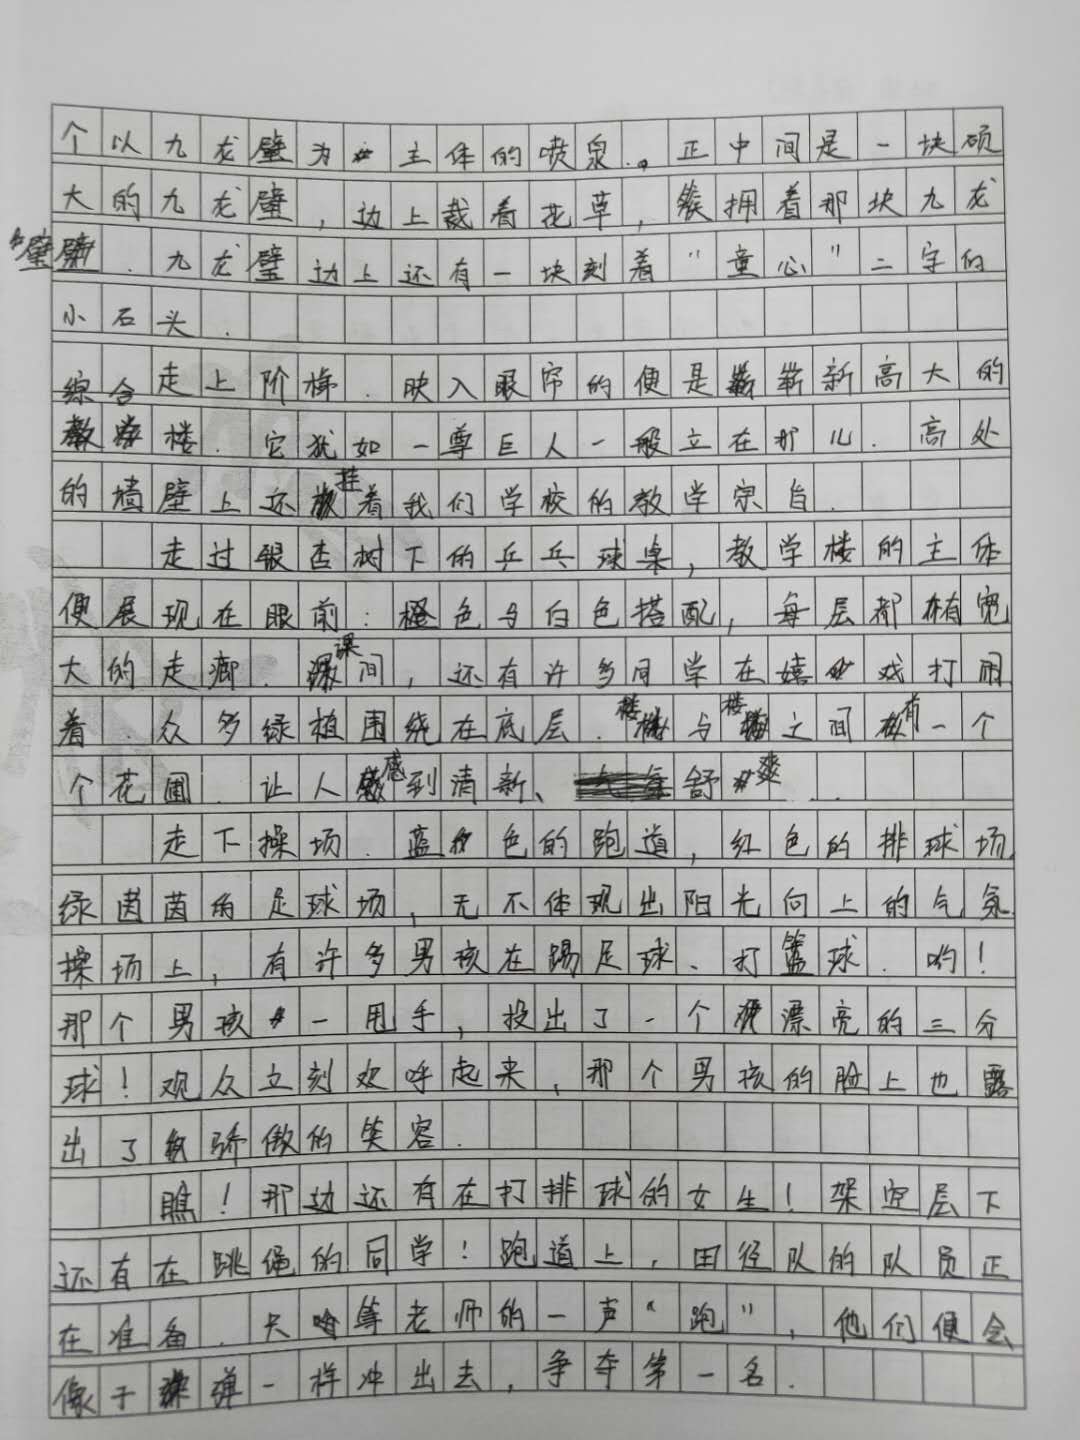 个以九龙壁为主体的喷泉。正中间是一块硕
大的九龙壁，边上栽着花草，簇拥着那块九龙
壁.九龙壁边上还有一块刻着“童心”二字的
小石头.
走上阶梯.映入眼帘的便是崭新高大的
综合楼.它犹如一尊巨人一般立在那儿.高处
的墙壁上还挂着我们学校的教学宗旨.
走过银杏树下的乒乓球桌，教学楼的主体
便展现在眼前：橙色与白色搭配，每层都有宽
大的走廊.课间，还有许多同学在嬉戏打闹
着.众多绿植围绕在底层.楼与楼之间有一个
个花圃.让人感到清新、舒爽..
走下操场.蓝色的跑道，红色的排球场
绿茵茵的足球场，无不体现出阳光向上的气氛
操场上，有许多男孩在踢足球、打篮球.哟！
那个男孩一甩手，投出了一个漂亮的三分
球！观众立刻欢呼起来，那个男孩的脸上也露
出了骄傲的笑容.
瞧！那边还有在打排球的女生！架空层下
还有在跳绳的同学！跑道上，田径队的队员正
在准备.只等老师的一声“跑”，他们便会
像子弹一样冲出去，争夺第一名.